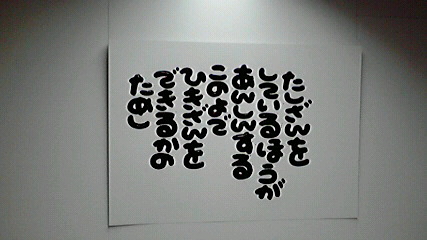 たしざんを
しているほうが
あんしんする
このよで
ひきざんを
できるかの
ためし